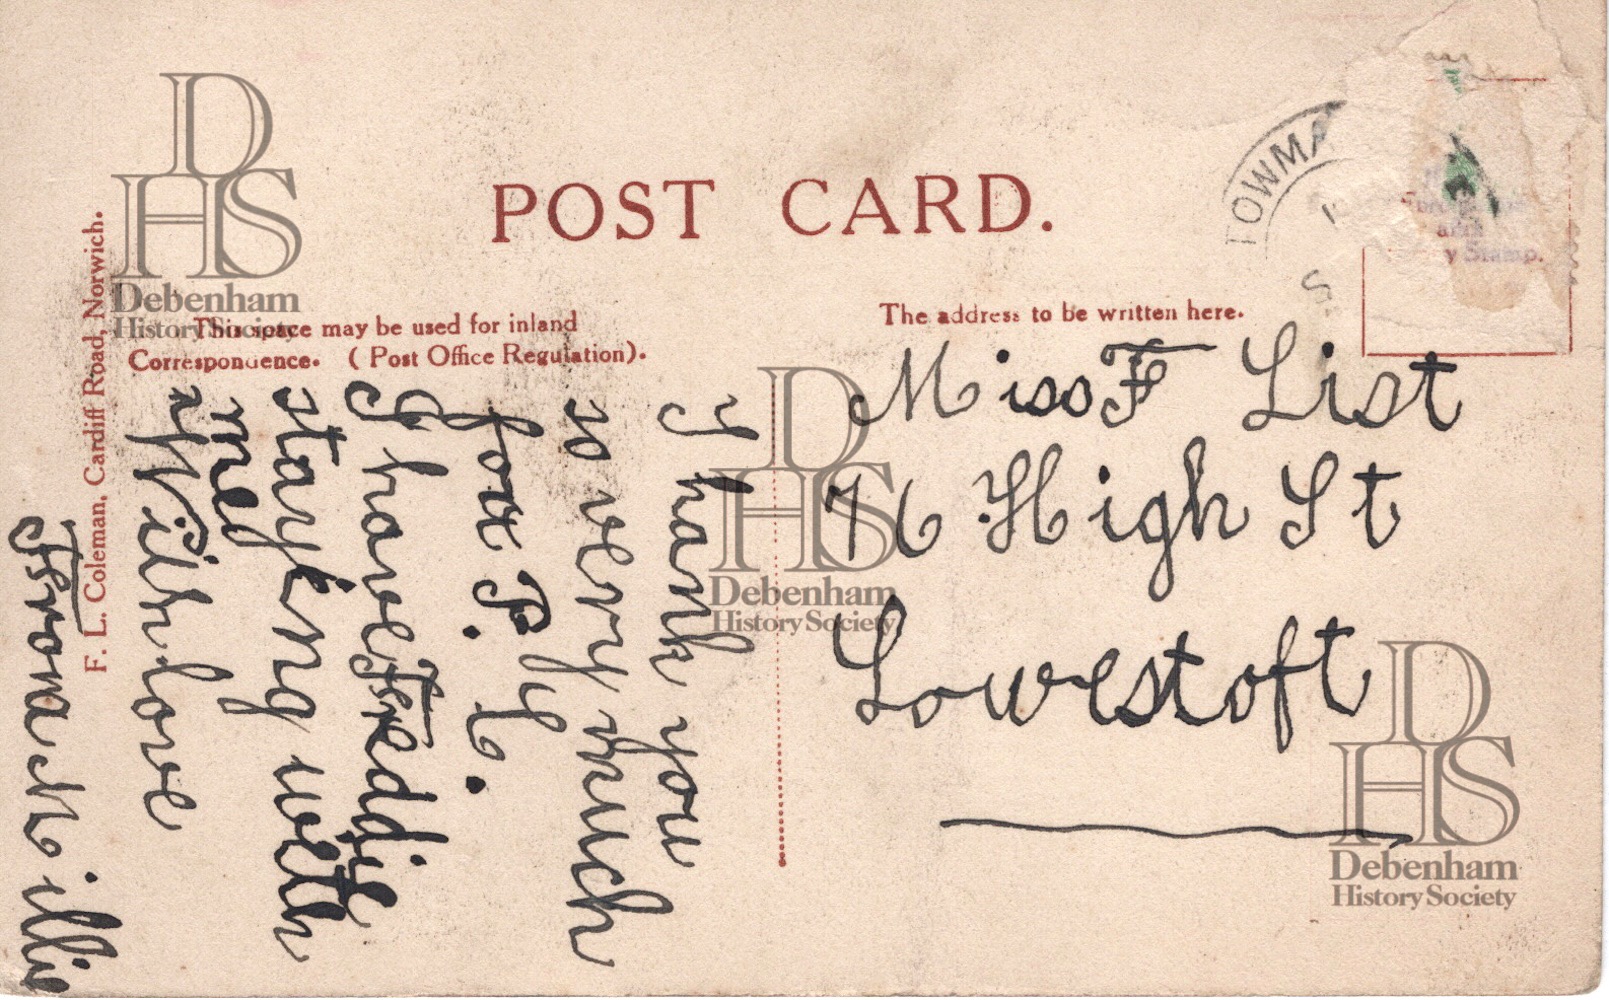 POST CARD.
This space may be used for inland
Correspondence. ( Post Office Regulation).
The address to be written here.
F. L. Coleman, Cardiff Road, Norwich.
TOWMA
y Stamp.
Miss F List
76 High St
Lowestoft
Thank you
so very much
for P. C.
I have Freddie
staying with
me
With love
From
Debenham
History Society
Debenham
History Society
Debenham
History Society